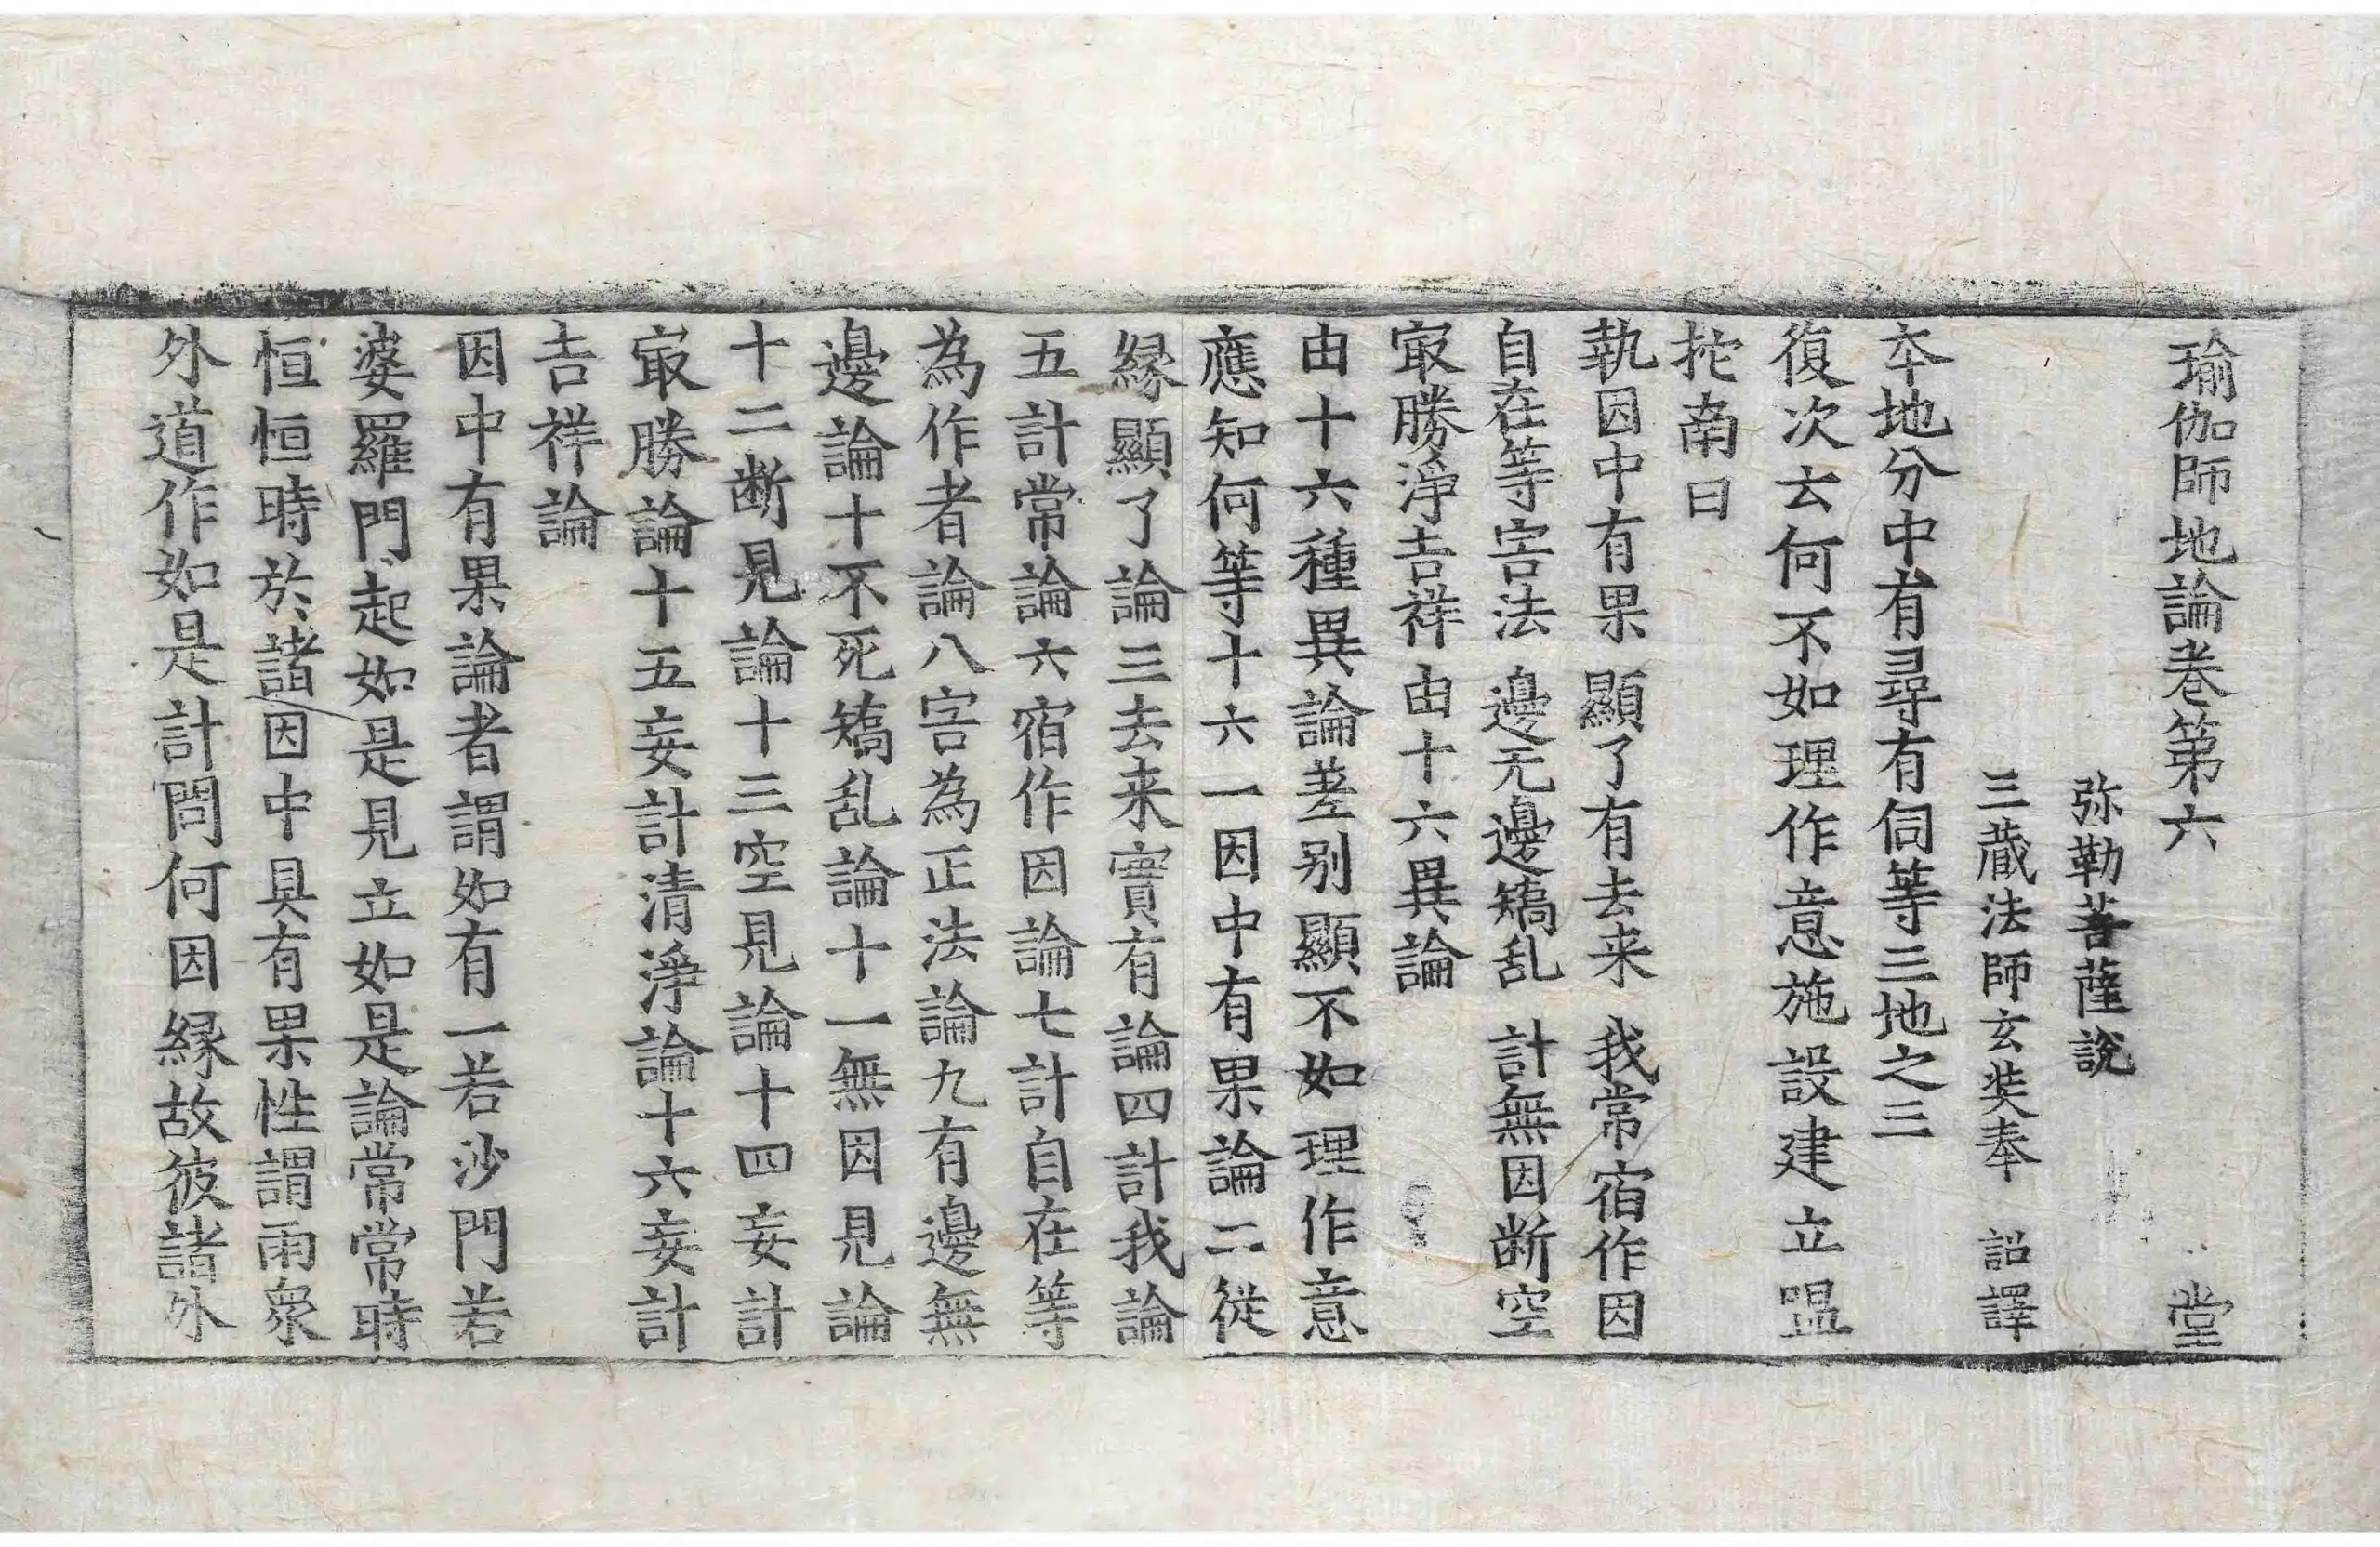 瑜伽師地論卷第六 堂
弥勒菩薩說
三蔵法師玄奘奉 詔譯
夲地分中有尋有伺等三地之三
復次云何不如理作意施設建立嗢
拕南曰
執因中有果 顯了有去来 我常宿作因
自在等害法 邊无邊矯乱 計無因断空
㝡勝淨吉祥 由十六異論
由十六種異論差别顯不如理作意
應知何等十六一因中有果論二從
縁顯了論三去来實有論四計我論
五計常論六宿作因論七計自在等
為作者論八害為正法論九有邊無
邊論十不死矯乱論十一無因見論
十二断見論十三空見論十四妄計
㝡勝論十五妄計清淨論十六妄計
吉祥論
因中有果論者謂如有一若沙門若
婆羅門起如是見立如是論常常時
恒恒時於諸因中具有果性謂雨衆
外道作如是計問何因縁故彼諸外